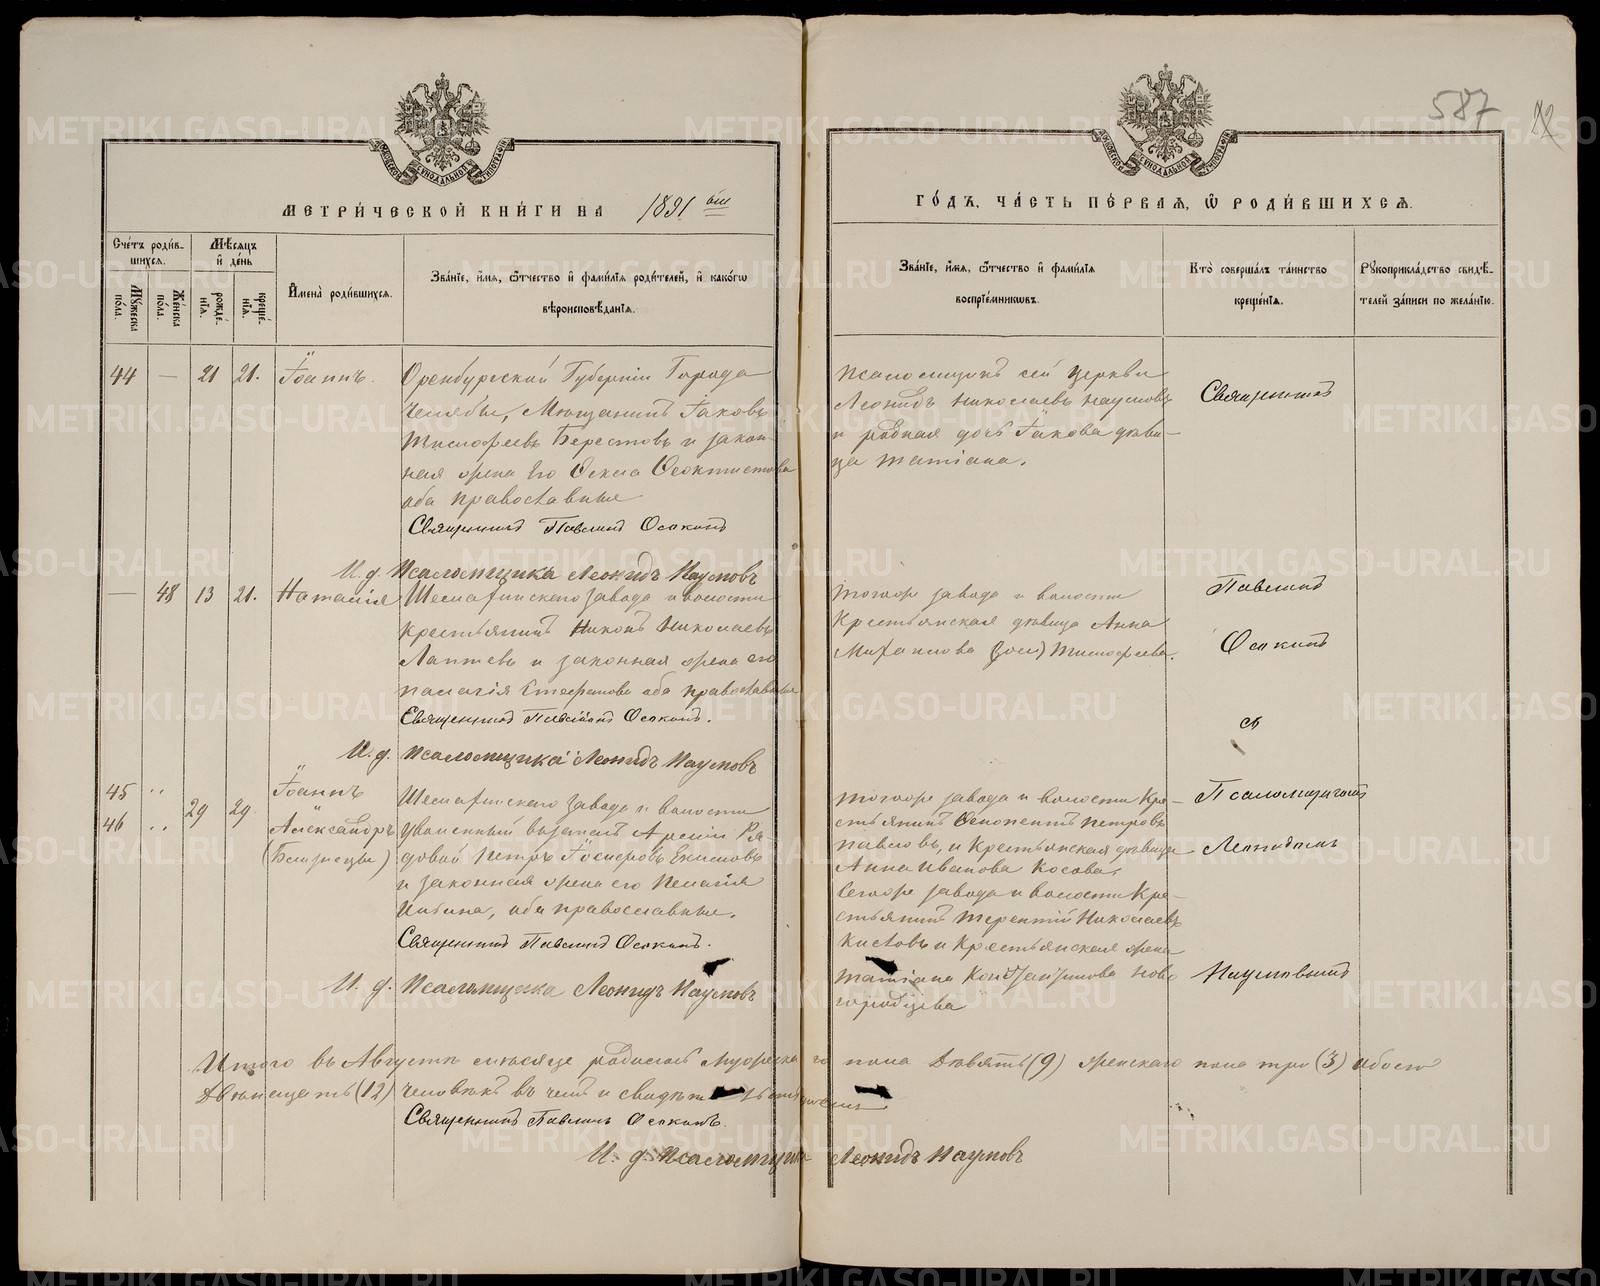 587
МЕТРИ́ЧЕСКОЙ КНИ́ГИ НА 1891 ый
ГО́ДЪ, ЧА́СТЬ ПЕ́РВАЯ, Ѡ РОДИ́ВШИХСЯ.
Сче́тъ роди́вшихся.
Му́жеска по́ла.
Же́нска по́ла.
Мѣ́сяцъ и де́нь
рожде́нїя.
креще́нїя.
И҆мена̀ роди́вшихся.
Зва́нїе, и҆́мя, ѻ҆́тчество и҆ фами́лїя роди́телей, и҆ како́гѡ
вѣроисповѣ́данїя.
Зва́нїе, и҆́мя, ѻ҆́тчество и҆ фами́лїя
воспрїе́мникѡвъ.
Кто̀ соверша́лъ та́инство
креще́нїя.
Рꙋкоприкла́дство свидѣ́-
телей за́писи по жела́нїю.
44 — 21 21. Іоаннъ.
Оренбургской Губерніи Города
Челябы, Мѣщанинъ Іаковъ
Тимофеевъ Берестовъ и закон-
ная жена его Ѳекла Ѳеоктистова
оба православные
Священникъ Павлинъ Осокинъ
И. д. Псаломщика Леонидъ Наумовъ
Псаломщикъ сей церкви
Леонидъ Николаевъ Наумовъ
и родная дочь Іакова дѣви-
ца Татіана.
Священникъ
— 48 13 21. Наталія
Шемахинскаго завода и волости
Крестьянинъ Никонъ Николаевъ
Лаптевъ и законная жена его
Пелагія Стефанова оба православные
Священникъ Павлинъ Осокинъ.
И. д. Псаломщика Леонидъ Наумовъ
Тогоже завода и волости
Крестьянская дѣвица Анна
Тимофеева.
Павлинъ
Осокинъ
съ
45 " 29 29. Іоаннъ
46 " Александръ
(Близнецы)
Шемахинскаго завода и волости
Уволенный въ запасъ Арміи Ря-
довой Петръ
и законная жена его Пелагія
оба православные.
Священникъ Павлинъ Осокинъ.
И. д. Псаломщика Леонидъ Наумовъ
Тогоже завода и волости Кре-
стьянинъ Петровъ
Павловъ, и Крестьянская дѣвица
Анна Иванова Косова.
Сегоже завода и волости Кре-
стьянинъ Терентій Николаевъ
Кисловъ и Крестьянская жена
Татіана Константинова Ново
городцева
Псаломщикомъ
Леонидомъ
Наумовымъ
Итого въ Августѣ мѣсяцѣ родилось мужеска го пола девять (9) женскаго пола три (3) обоего
двѣнадцать (12) человѣкъ въ чемъ и свидѣтельствуемъ
Священникъ Павлинъ Осокинъ.
И. д. Псаломщика Леонидъ Наумовъ
METRIKI.GASO-URAL.RU